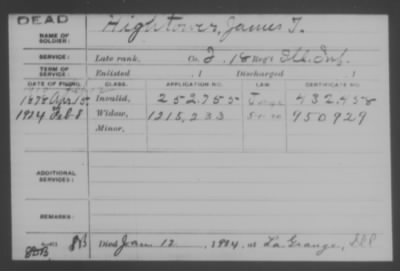 DEAD
NAME OF SOLDIER: Hightower, James T.
SERVICE: Late rank, Co. I, 18 Reg't Ill. Inf.
TERM OF SERVICE: Enlisted , 1 Discharged , 1
DATE OF FILING. CLASS. APPLICATION NO. LAW CERTIFICATE NO.
1878 Apr 15 Invalid, 252.755 432.458
1924 Feb 8 Widow, 1215,233 950929
Minor,
ADDITIONAL SERVICES:
REMARKS:
Died Jan 12, 1924, at La Grange, Ill